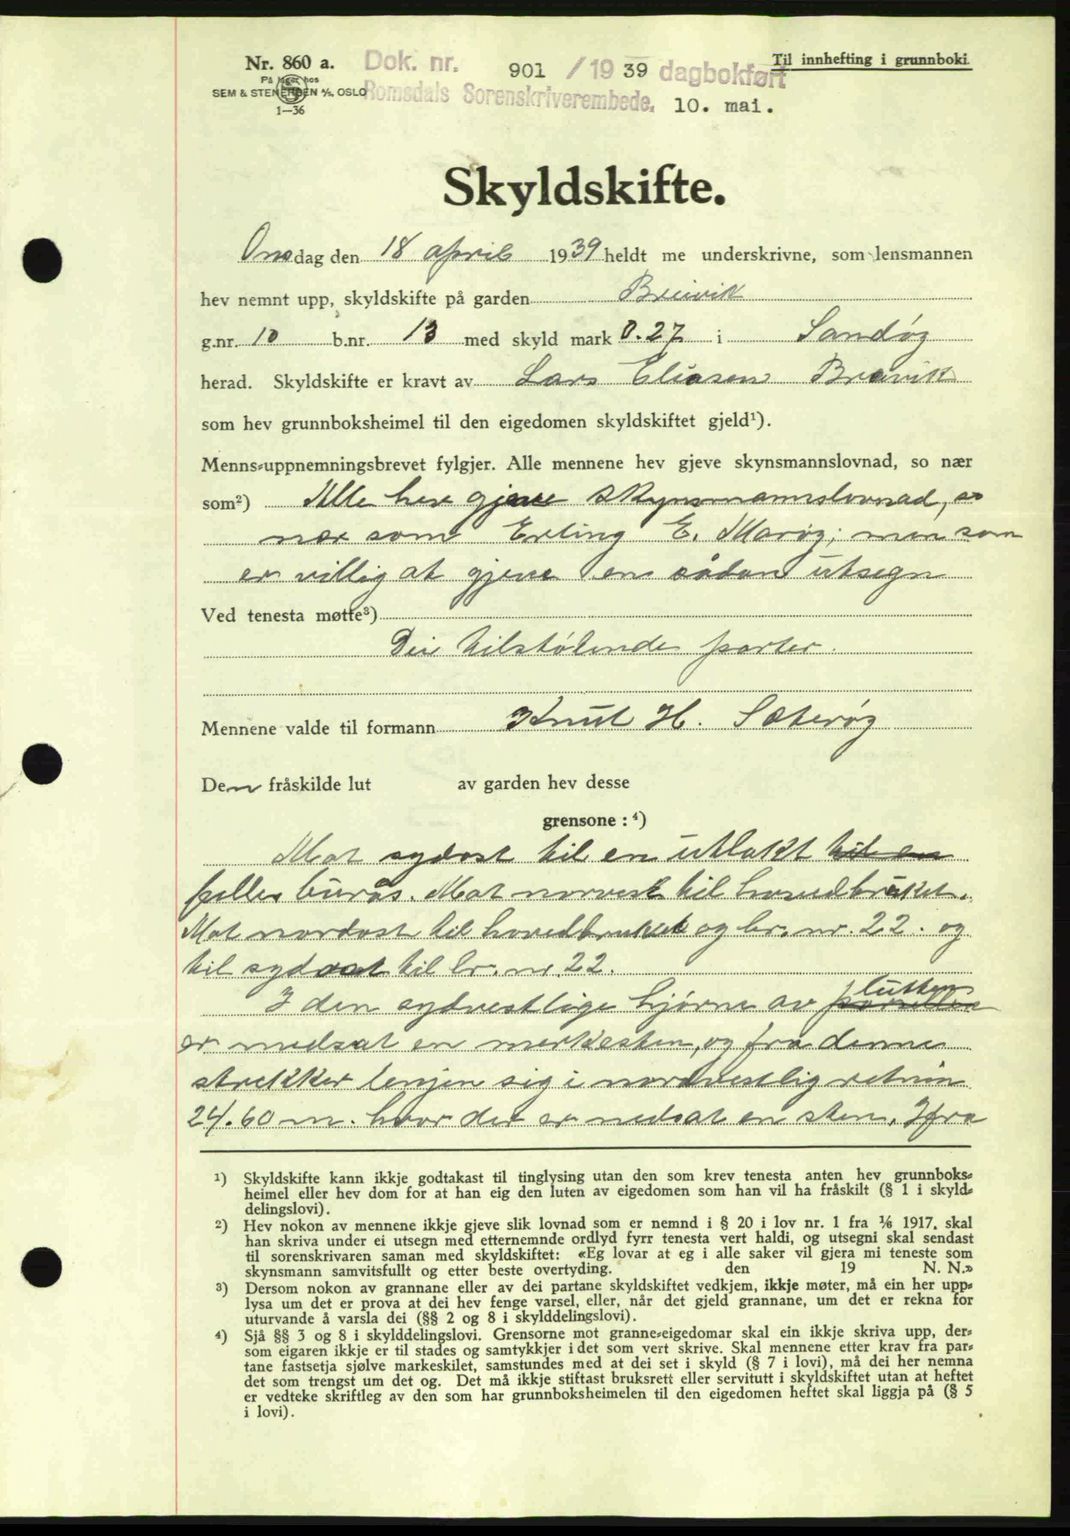 Nr. 860 a.
På lager hos
SEM & STENERSEN A/S, OSLO
1—36
Dok. nr. 901 / 1939 dagbokført
Romsdals Sorenskriverembede. 10. mai.
Til innhefting i grunnboki.
Skyldskifte.
Onsdag den 18 april 1939 heldt me underskrivne, som lensmannen
hev nemnt upp, skyldskifte på garden Breivik
g.nr. 10 b.nr. 13 med skyld mark 0.27 i Sandøy
herad. Skyldskifte er kravt av Lars Eliasen Breivik
som hev grunnboksheimel til den eigedomen skyldskiftet gjeld¹).
Menns-uppnemningsbrevet fylgjer. Alle mennene hev gjeve skynsmannslovnad, so nær
som²) Alle hev gjeve skynsmannslovnad, so
nær som Erling E. Marøy; men som
er villig at gjeve en sådan utsegn
Ved tenesta møtte³)
Dei tilstøtende parter.
Mennene valde til formann Knut H. Sæterøy
Den fråskilde lut av garden hev desse
grensone: ⁴)
Mot sydost til en utlakt til en
felles burås. Mot norvest til hovedbruket.
Mot nordost til hovedbruket og br. nr. 22. og
til sydost til br. nr. 22.
I den sydvestlige hjørne av parsellen lutten
er nedsat en merkesten, og fra denne
strekker lenjen sig i nordvestlig retnin
24.60 m. hvor der er nedsat en sten. Ifra
¹) Skyldskifte kann ikkje godtakast til tinglysing utan den som krev tenesta anten hev grunnboks-
heimel eller hev dom for at han eig den luten av eigedomen som han vil ha fråskilt (§ 1 i skyld-
delingslovi).
²) Hev nokon av mennene ikkje gjeve slik lovnad som er nemnd i § 20 i lov nr. 1 fra 1/6 1917, skal
han skriva under ei utsegn med etternemnde ordlyd fyrr tenesta vert haldi, og utsegni skal sendast
til sorenskrivaren saman med skyldskiftet: «Eg lovar at eg i alle saker vil gjera mi teneste som
skynsmann samvitsfullt og etter beste overtyding. den 19 N. N.»
³) Dersom nokon av grannane eller av dei partane skyldskiftet vedkjem, ikkje møter, må ein her upp-
lysa um det er prova at dei hev fenge varsel, eller, når det gjeld grannane, um det er rekna for
uturvande å varsla dei (§§ 2 og 8 i skylddelingslovi).
⁴) Sjå §§ 3 og 8 i skylddelingslovi. Grensorne mot granne-eigedomar skal ein ikkje skriva upp, der-
som eigaren ikkje er til stades og samtykkjer i det som vert skrive. Skal mennene etter krav fra par-
tane fastsetja sjølve markeskilet, samstundes med at dei set i skyld (§ 7 i lovi), må dei her nemna
det som trengst um det og. Det må ikkje stiftast bruksrett eller servitutt i skyldskiftet utan at heftet
er vedteke skriftleg av den som har grunnboksheimelen til den eigedomen heftet skal liggja på (§ 5
i lovi).